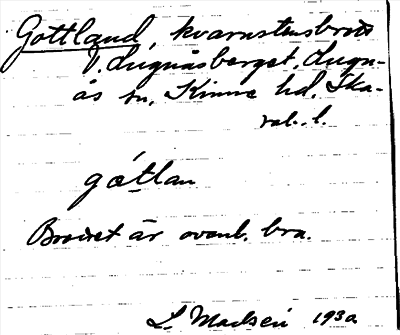 Gottland, kvarnstensbrott
V. Lugnåsberget, Lugn-
ås sn, Kinne hd, Ska-
rab. l.
gɔ́tlan
är ovanl. bra.
1930